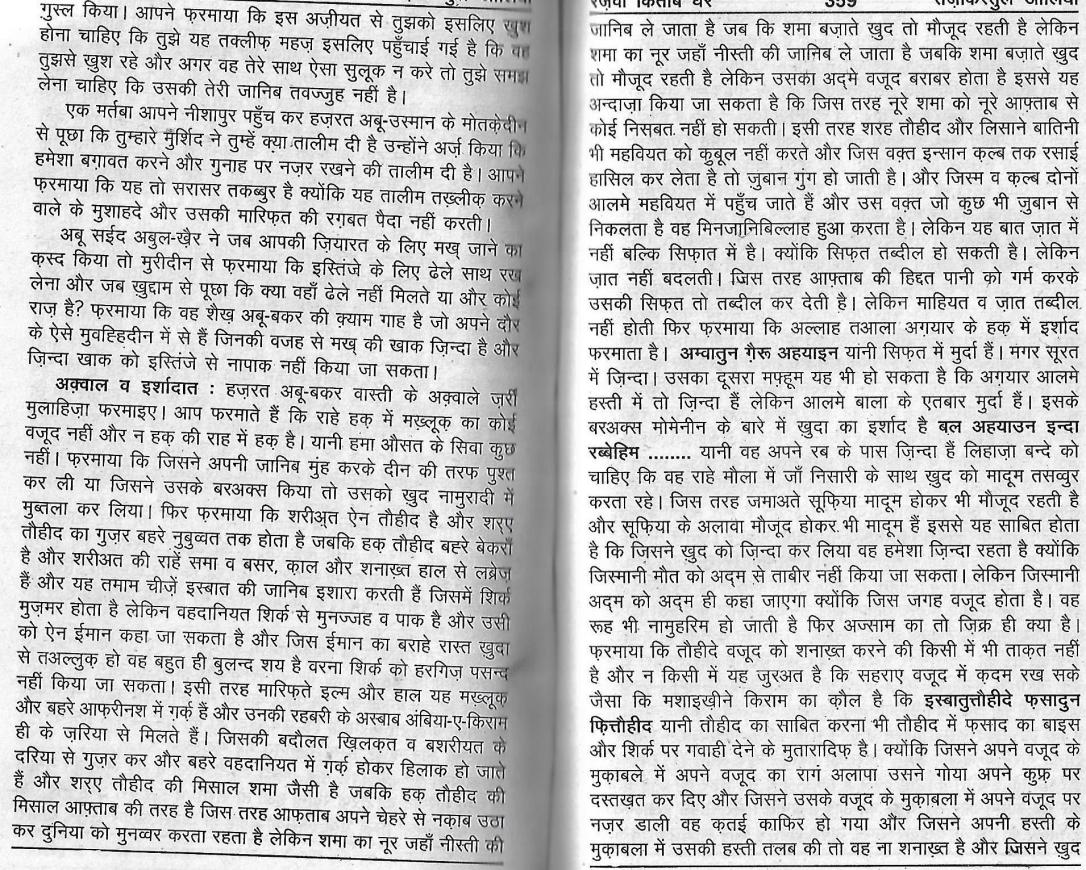 गुस्ल किया। आपने फ़रमाया कि इस अज़ीयत से तुझको इसलिए खुश
होना चाहिए कि तुझे यह तक्लीफ़ महज़ इसलिए पहुँचाई गई है कि वह
तुझसे खुश रहे और अगर वह तेरे साथ ऐसा सुलूक न करे तो तुझे समझ
लेना चाहिए कि उसकी तेरी जानिब तवज्जुह नहीं है।
एक मर्तबा आपने नीशापुर पहुँच कर हज़रत अबू-उस्मान के मोतक़ेदीन
से पूछा कि तुम्हारे मुर्शिद ने तुम्हें क्या तालीम दी है उन्होंने अर्ज़ किया कि
हमेशा बग़ावत करने और गुनाह पर नज़र रखने की तालीम दी है। आपने
फ़रमाया कि यह तो सरासर तकब्बुर है क्योंकि यह तालीम तख़्लीक़ करने
वाले के मुशाहदे और उसकी मारिफ़त की रग़बत पैदा नहीं करती।
अबू सईद अबुल-ख़ैर ने जब आपकी ज़ियारत के लिए मख् जाने का
क़स्द किया तो मुरीदीन से फ़रमाया कि इस्तिंजे के लिए ढेले साथ रख
लेना और जब ख़ुद्दाम से पूछा कि क्या वहाँ ढेले नहीं मिलते या और कोई
राज़ है? फ़रमाया कि वह शैख़ अबू-बकर की क़्याम गाह है जो अपने दौर
के ऐसे मुवह्हिदीन में से हैं जिनकी वजह से मख् की खाक ज़िन्दा है और
ज़िन्दा खाक को इस्तिंजे से नापाक नहीं किया जा सकता।
अक़्वाल व इर्शादात : हज़रत अबू-बकर वास्ती के अक़्वाले ज़र्रीं
मुलाहिज़ा फरमाइए। आप फरमाते हैं कि राहे हक़ में मख़्लूक़ का कोई
वजूद नहीं और न हक़ की राह में हक़ है। यानी हमा औसत के सिवा कुछ
नहीं। फ़रमाया कि जिसने अपनी जानिब मुंह करके दीन की तरफ़ पुश्त
कर ली या जिसने उसके बरअक्स किया तो उसको खुद नामुरादी में
मुब्तला कर लिया। फिर फ़रमाया कि शरीअ़त ऐन तौहीद है और शरए
तौहीद का गुज़र बहरे नुबुव्वत तक होता है जबकि हक़ तौहीद बहरे बेकराँ
है और शरीअत की राहें समा व बसर, क़ाल और शनाख़्त हाल से लब्रेज़
हैं और यह तमाम चीज़ें इस्बात की जानिब इशारा करती हैं जिसमें शिर्क
मुज़मर होता है लेकिन वहदानियत शिर्क से मुनज्जह व पाक है और उसी
को ऐन ईमान कहा जा सकता है और जिस ईमान का बराहे रास्त ख़ुदा
से तअल्लुक़ हो वह बहुत ही बुलन्द शय है वरना शिर्क को हरगिज़ पसन्द
नहीं किया जा सकता। इसी तरह मारिफ़ते इल्म और हाल यह मख़्लूक़
और बहरे आफ़रीनश में ग़र्क़ हैं और उनकी रहबरी के अस्बाब अंबिया-ए-किराम
ही के ज़रिया से मिलते हैं। जिसकी बदौलत ख़िलक़त व बशरीयत के
दरिया से गुज़र कर और बहरे वहदानियत में ग़र्क़ होकर हिलाक हो जाते
हैं और शरए तौहीद की मिसाल शमा जैसी है जबकि हक़ तौहीद की
मिसाल आफ़्ताब की तरह है जिस तरह आफ़्ताब अपने चेहरे से नक़ाब उठा
कर दुनिया को मुनव्वर करता रहता है लेकिन शमा का नूर जहाँ नीस्ती की
359
जानिब ले जाता है जब कि शमा बज़ाते खुद तो मौजूद रहती है लेकिन
शमा का नूर जहाँ नीस्ती की जानिब ले जाता है जबकि शमा बज़ाते खुद
तो मौजूद रहती है लेकिन उसका अद्मे वजूद बराबर होता है इससे यह
अन्दाज़ा किया जा सकता है कि जिस तरह नूरे शमा को नूरे आफ़्ताब से
कोई निसबत नहीं हो सकती। इसी तरह शरह तौहीद और लिसाने बातिनी
भी महवियत को क़ुबूल नहीं करते और जिस वक़्त इन्सान क़ल्ब तक रसाई
हासिल कर लेता है तो ज़ुबान गुंग हो जाती है। और जिस्म व क़ल्ब दोनों
आलमे महवियत में पहुँच जाते हैं और उस वक़्त जो कुछ भी ज़ुबान से
निकलता है वह मिनजानिबिल्लाह हुआ करता है। लेकिन यह बात ज़ात में
नहीं बल्कि सिफ़ात में है। क्योंकि सिफ़त तब्दील हो सकती है। लेकिन
ज़ात नहीं बदलती। जिस तरह आफ़्ताब की हिद्दत पानी को गर्म करके
उसकी सिफ़त तो तब्दील कर देती है। लेकिन माहियत व ज़ात तब्दील
नहीं होती फिर फ़रमाया कि अल्लाह तआला अग़यार के हक़ में इर्शाद
फरमाता है। अम्वातुन ग़ैरू अहयाइन यांनी सिफ़त में मुर्दा हैं। मगर सूरत
में ज़िन्दा। उसका दूसरा मफ़्हूम यह भी हो सकता है कि अग़यार आलमे
हस्ती में तो ज़िन्दा हैं लेकिन आलमे बाला के एतबार मुर्दा हैं। इसके
बरअक्स मोमेनीन के बारे में खुदा का इर्शाद है बल अहयाउन इन्दा
रब्बेहिम ........ यानी वह अपने रब के पास ज़िन्दा हैं लिहाज़ा बन्दे को
चाहिए कि वह राहे मौला में जाँ निसारी के साथ खुद को मादूम तसव्वुर
करता रहे। जिस तरह जमाअते सूफ़िया मादूम होकर भी मौजूद रहती है
और सूफ़िया के अलावा मौजूद होकर भी मादूम हैं इससे यह साबित होता
है कि जिसने ख़ुद को ज़िन्दा कर लिया वह हमेशा ज़िन्दा रहता है क्योंकि
जिस्मानी मौत को अद्म से ताबीर नहीं किया जा सकता। लेकिन जिस्मानी
अद्म को अद्म ही कहा जाएगा क्योंकि जिस जगह वजूद होता है। वह
रूह भी नामुहरिम हो जाती है फिर अज्साम का तो ज़िक्र ही क्या है।
फ़रमाया कि तौहीदे वजूद को शनाख़्त करने की किसी में भी ताक़त नहीं
है और न किसी में यह जुरअत है कि सहराए वजूद में क़दम रख सके
जैसा कि मशाइख़ीने किराम का क़ौल है कि इस्बातुत्तौहीदे फ़सादुन
फ़ित्तौहीद यानी तौहीद का साबित करना भी तौहीद में फ़साद का बाइस
और शिर्क पर गवाही देने के मुतारादिफ़ है। क्योंकि जिसने अपने वजूद के
मुक़ाबले में अपने वजूद का रागं अलापा उसने गोया अपने कुफ़्र पर
दस्तख़त कर दिए और जिसने उसके वजूद के मुक़ाबला में अपने वजूद पर
नज़र डाली वह क़तई काफिर हो गया और जिसने अपनी हस्ती के
मुक़ाबला में उसकी हस्ती तलब की तो वह ना शनाख़्त है और जिसने खुद